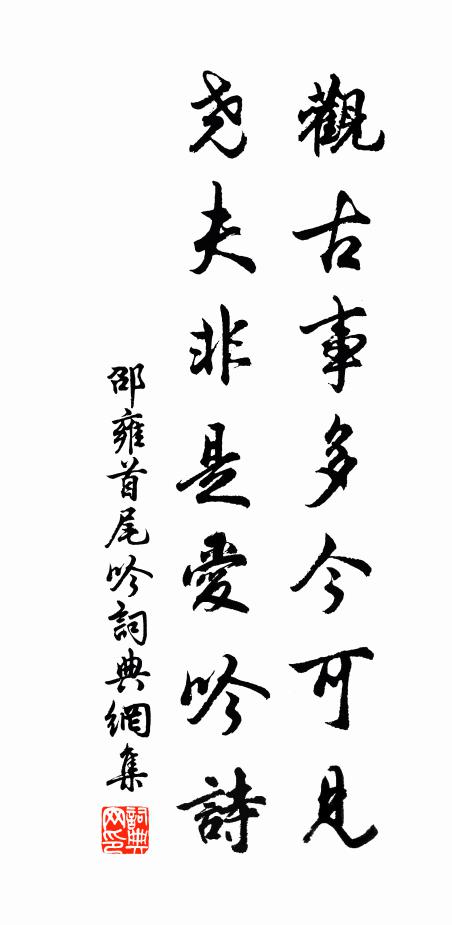 觀古事多今可見
尭夫非是愛吟詩
邵雍首尾吟詞典網集
詞典网印